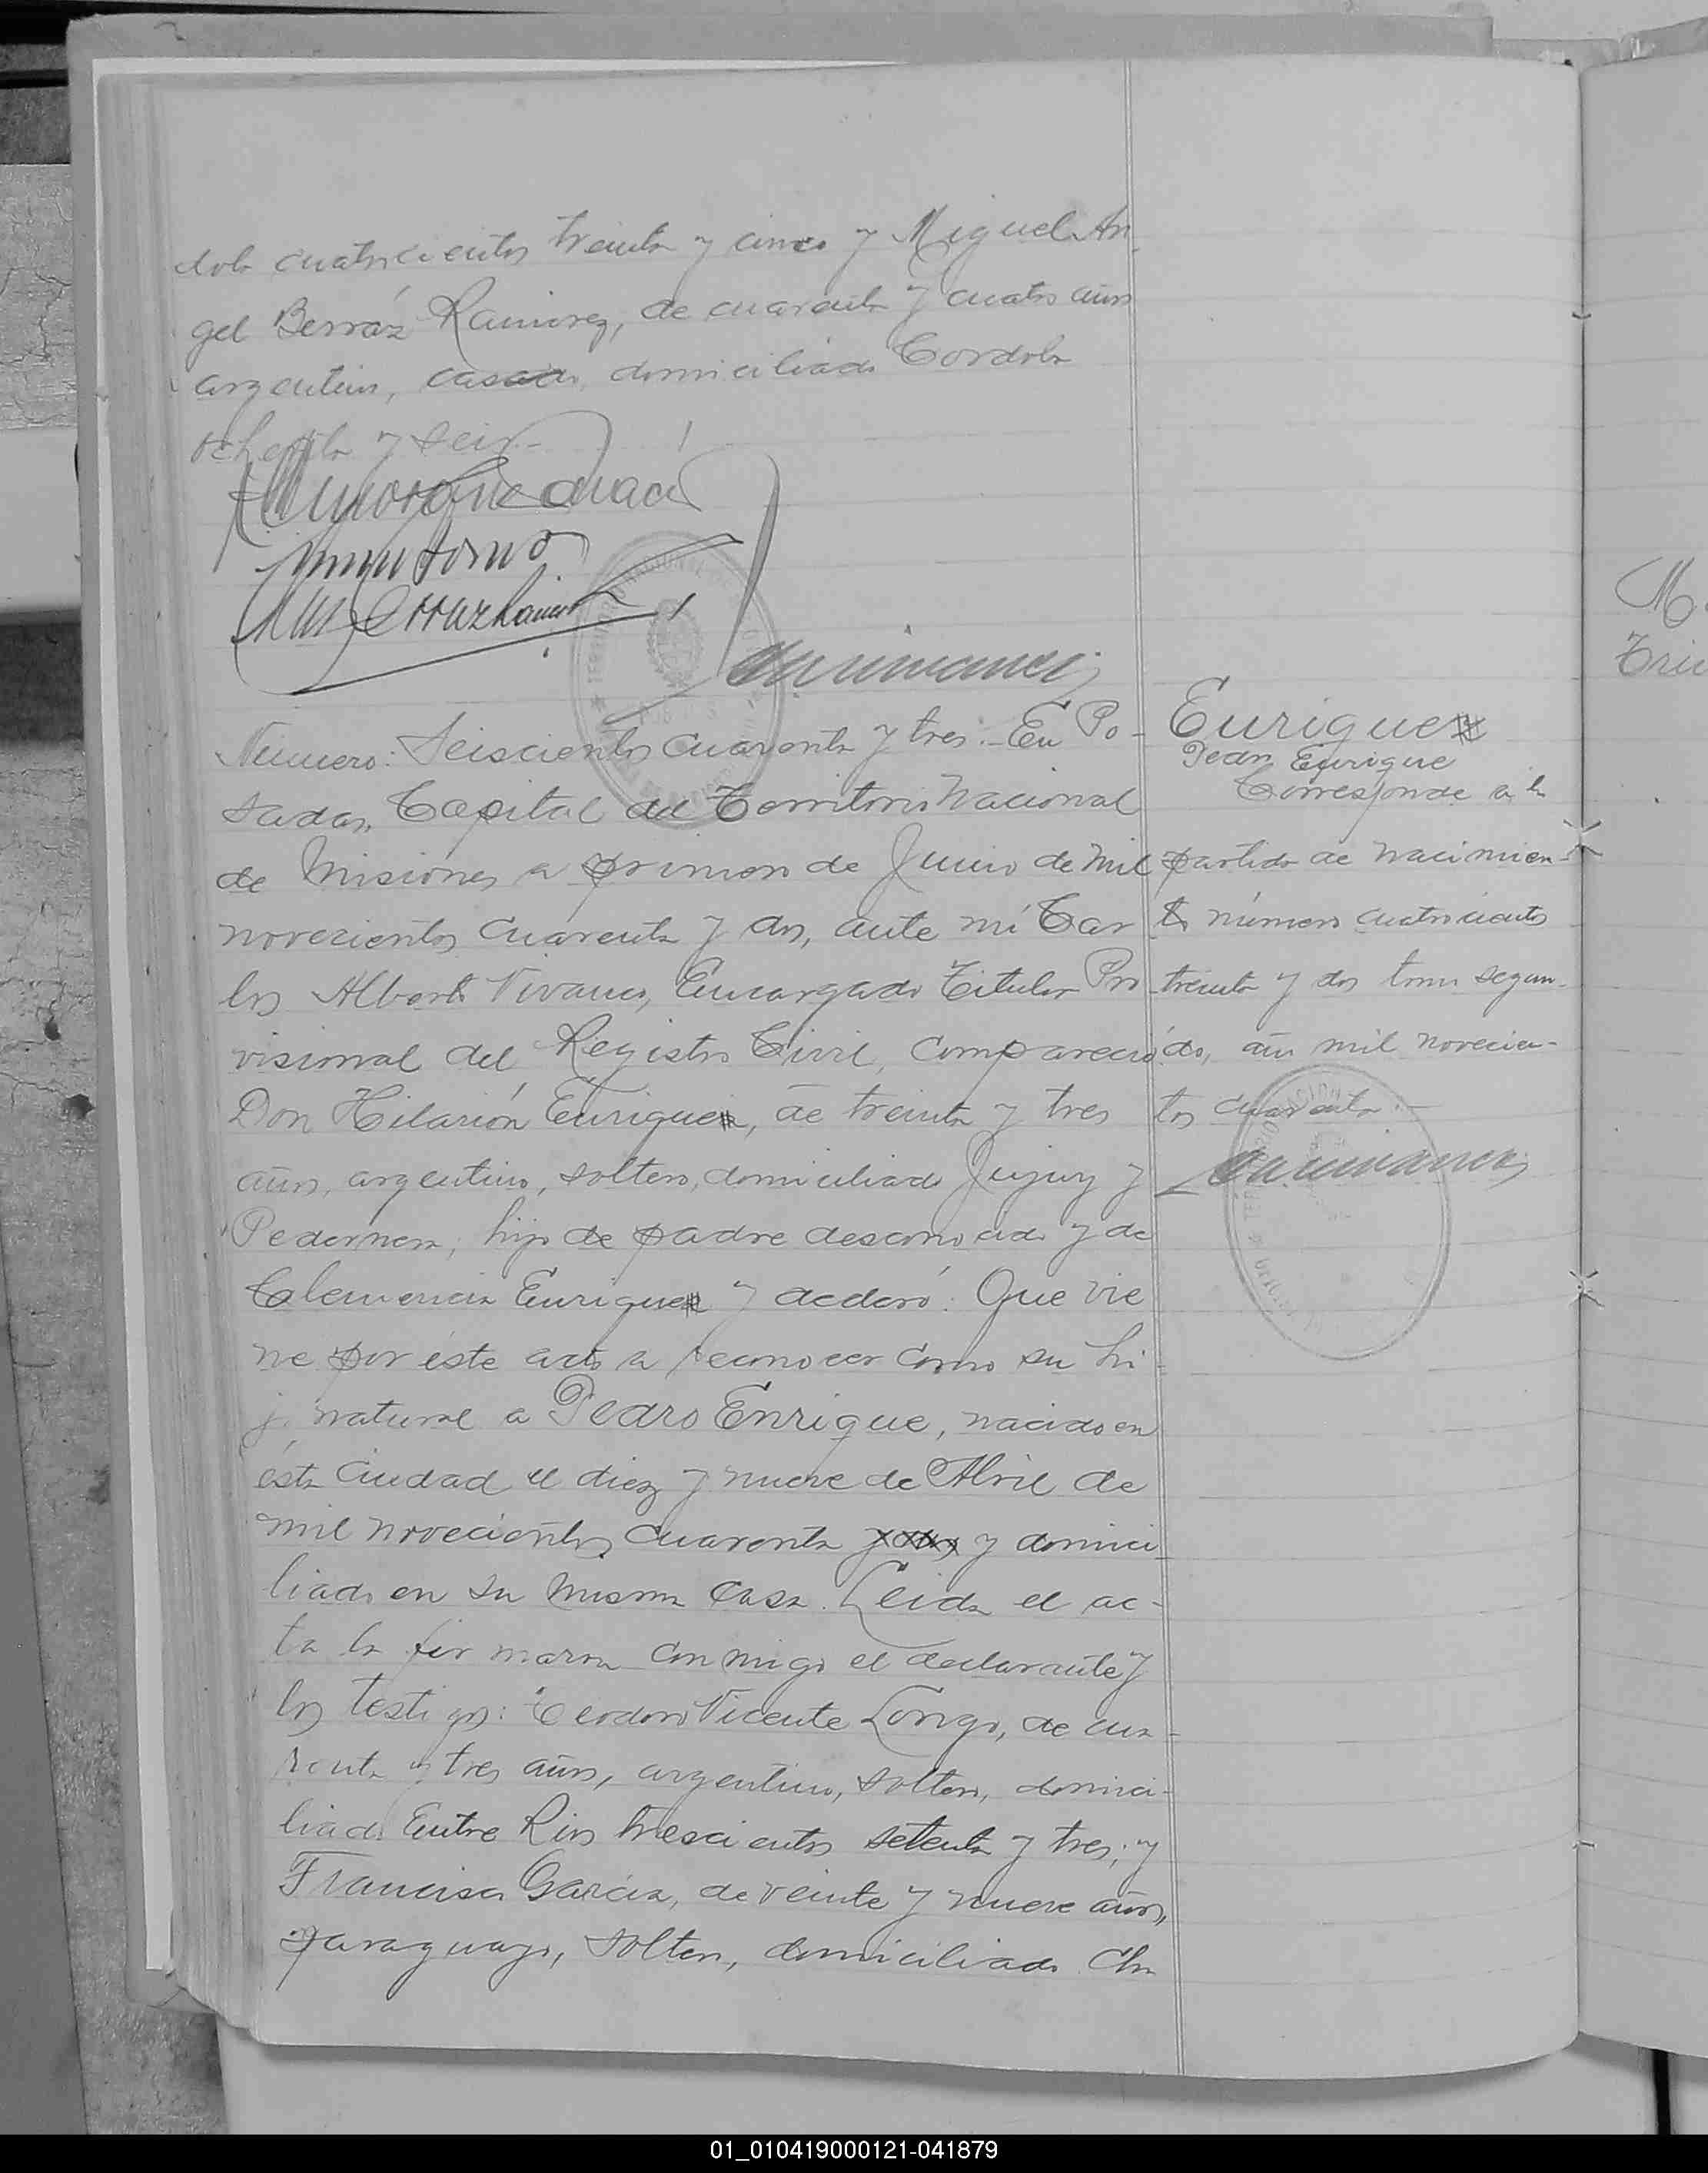 doba cuatrocientos treinta y cinco y Miguel An-
gel Berráz Ramirez, de cuarenta y cuatro años
argentino, casado, domiciliado Cordoba
ochenta y seis.-
Número: Seiscientos cuarenta y tres.- En Po-
sadas, Capital del Territorio Nacional
de Misiones a primero de Junio de mil
novecientos cuarenta y dos, ante mí Car
los Alberto Vivanco, Encargado Titular Pro
visional del Registro Civil, compareció
Don Hilarión Enrique, de treinta y tres
años, argentino, soltero, domiciliado Jujuy y
Pedernera, hijo de padre desconocido y de
Clemencia Enrique y declaró: Que vie
ne por éste acto a reconocer como su hi-
jo natural a Pedro Enrique, nacido en
ésta Ciudad el diez y nueve de Abril de
mil novecientos cuarenta y domici
liado en su misma casa. Leida el ac-
ta la firmaron conmigo el declarante y
los testigos: Teodoro Vicente Longo, de cua-
renta y tres años, argentino, soltero, domici-
liado Entre Rios trescientos setenta y tres; y
Francisco Garcia, de veinte y nueve años,
paraguayo, soltero, domiciliado Cha
Enrique
Pedro Enrique
Corresponde a la
partida de nacimien-
to número cuatrocientos
treinta y dos tomo segun-
do, año mil novecien-
tos cuarenta.-
01_010419000121-041879